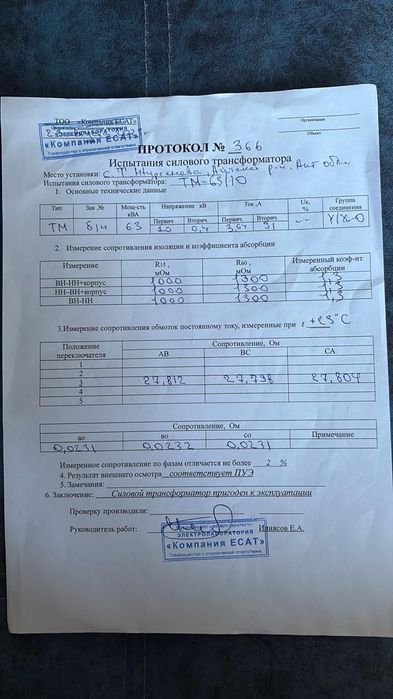 ТОО «Компания ЕСАТ»
ЭЛЕКТРОЛАБОРАТОРИЯ
«Компания ЕСАТ»
Товарищество с ограниченной ответствен.
Организация
Объект
ПРОТОКОЛ № 366
Испытания силового трансформатора
Место установки: обл.
Испытания силового трансформатора: ТМ-63/10
1. Основные технические данные
Тип Зав.№ Мощ-сть кВА Напряжение кВ Ток ,А Uк, % Группа соединения
Первич. Вторич. Первич. Вторич.
ТМ б/н 63 10 0,4 3,64 91 -- Y/Y-0
2. Измерение сопротивления изоляции и коэффициента абсорбции
Измерение R15 , мОм R60 , мОм Измеренный коэф-нт абсорбции
ВН-НН+корпус 1000 1300 1,3
НН-ВН+корпус 1000 1300 1,3
ВН-НН 1000 1300 1,3
3.Измерение сопротивления обмоток постоянному току, измеренные при t +23°C
Положение переключателя Сопротивление, Ом
АВ ВС СА
1
2
3 27,812 27,798 27,804
4
5
Сопротивление, Ом
ао во со Примечание
0,0231 0,0232 0,0231
Измеренное сопротивление по фазам отличается не более 2 %
4. Результат внешнего осмотра соответствует ПУЭ
5. Замечания:
6. Заключение: Силовой трансформатор пригоден к эксплуатации
Проверку производили:
Руководитель работ: Илиясов Е.А.
ЭЛЕКТРОЛАБОРАТОРИЯ
«Компания ЕСАТ»
Товарищество с ограниченной ответствен.